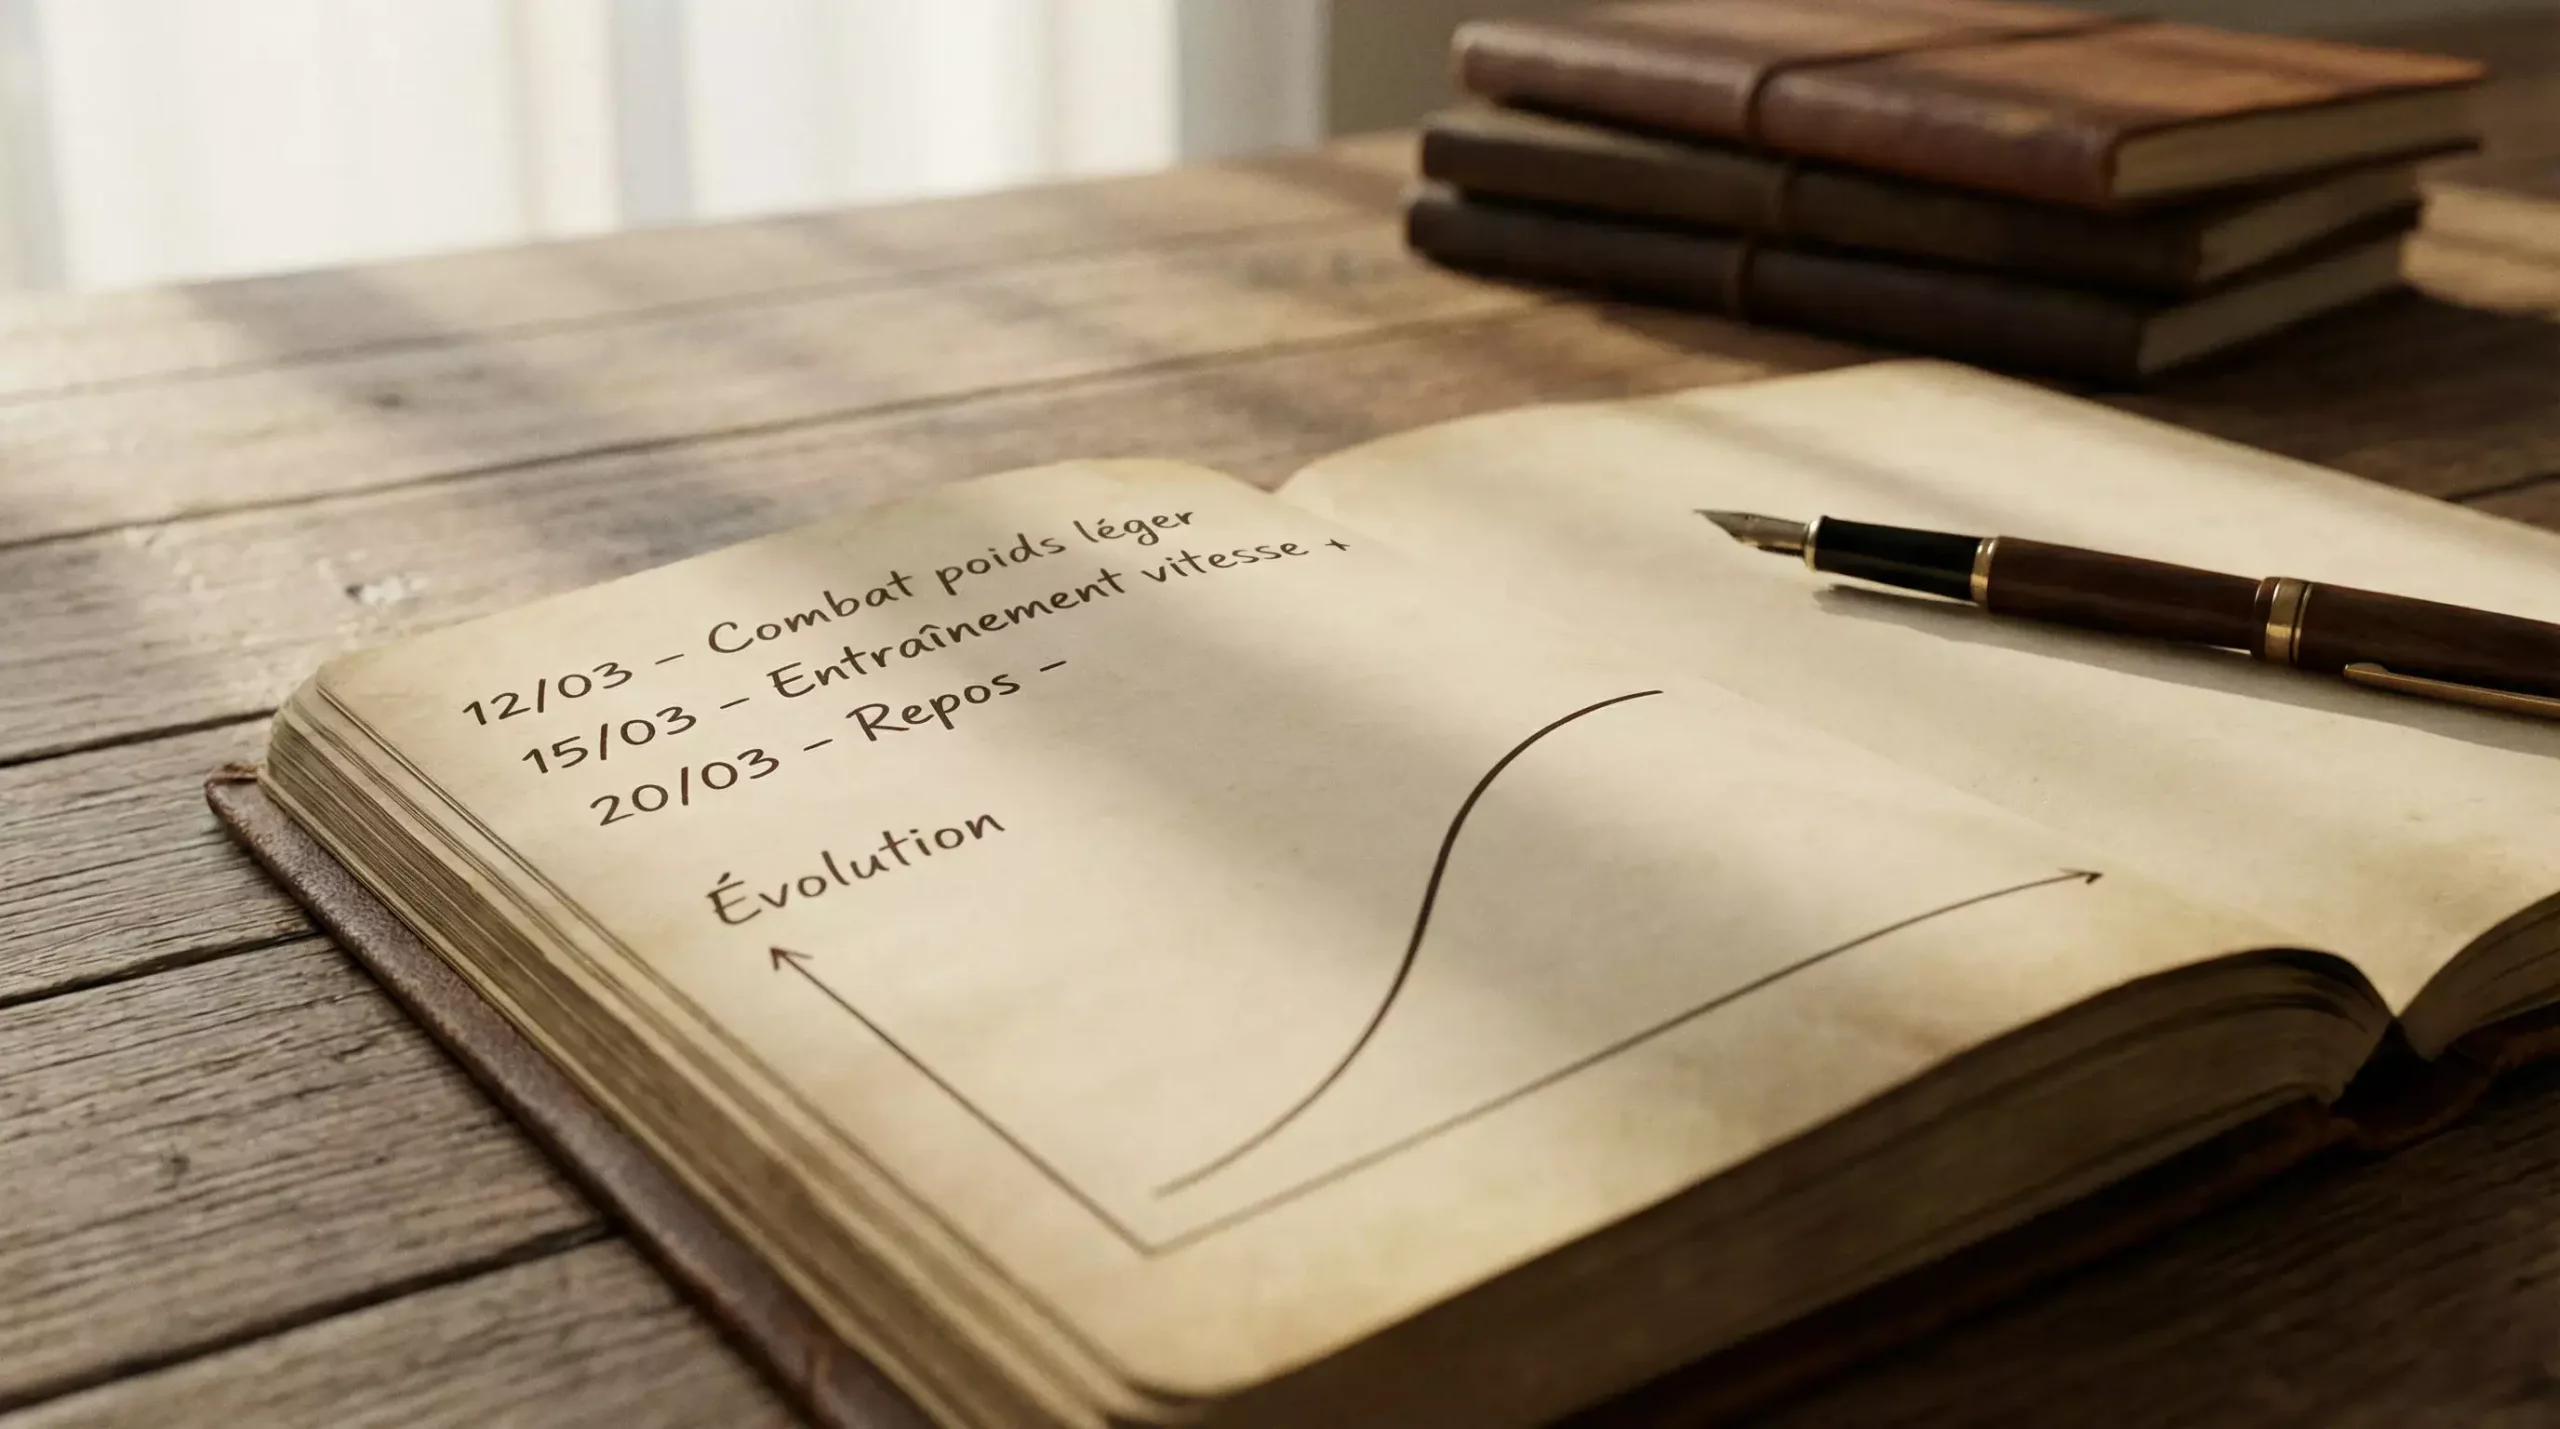 12/03 – Combat poids léger
15/03 – Entraînement vitesse +
20/03 – Repos –
Évolution